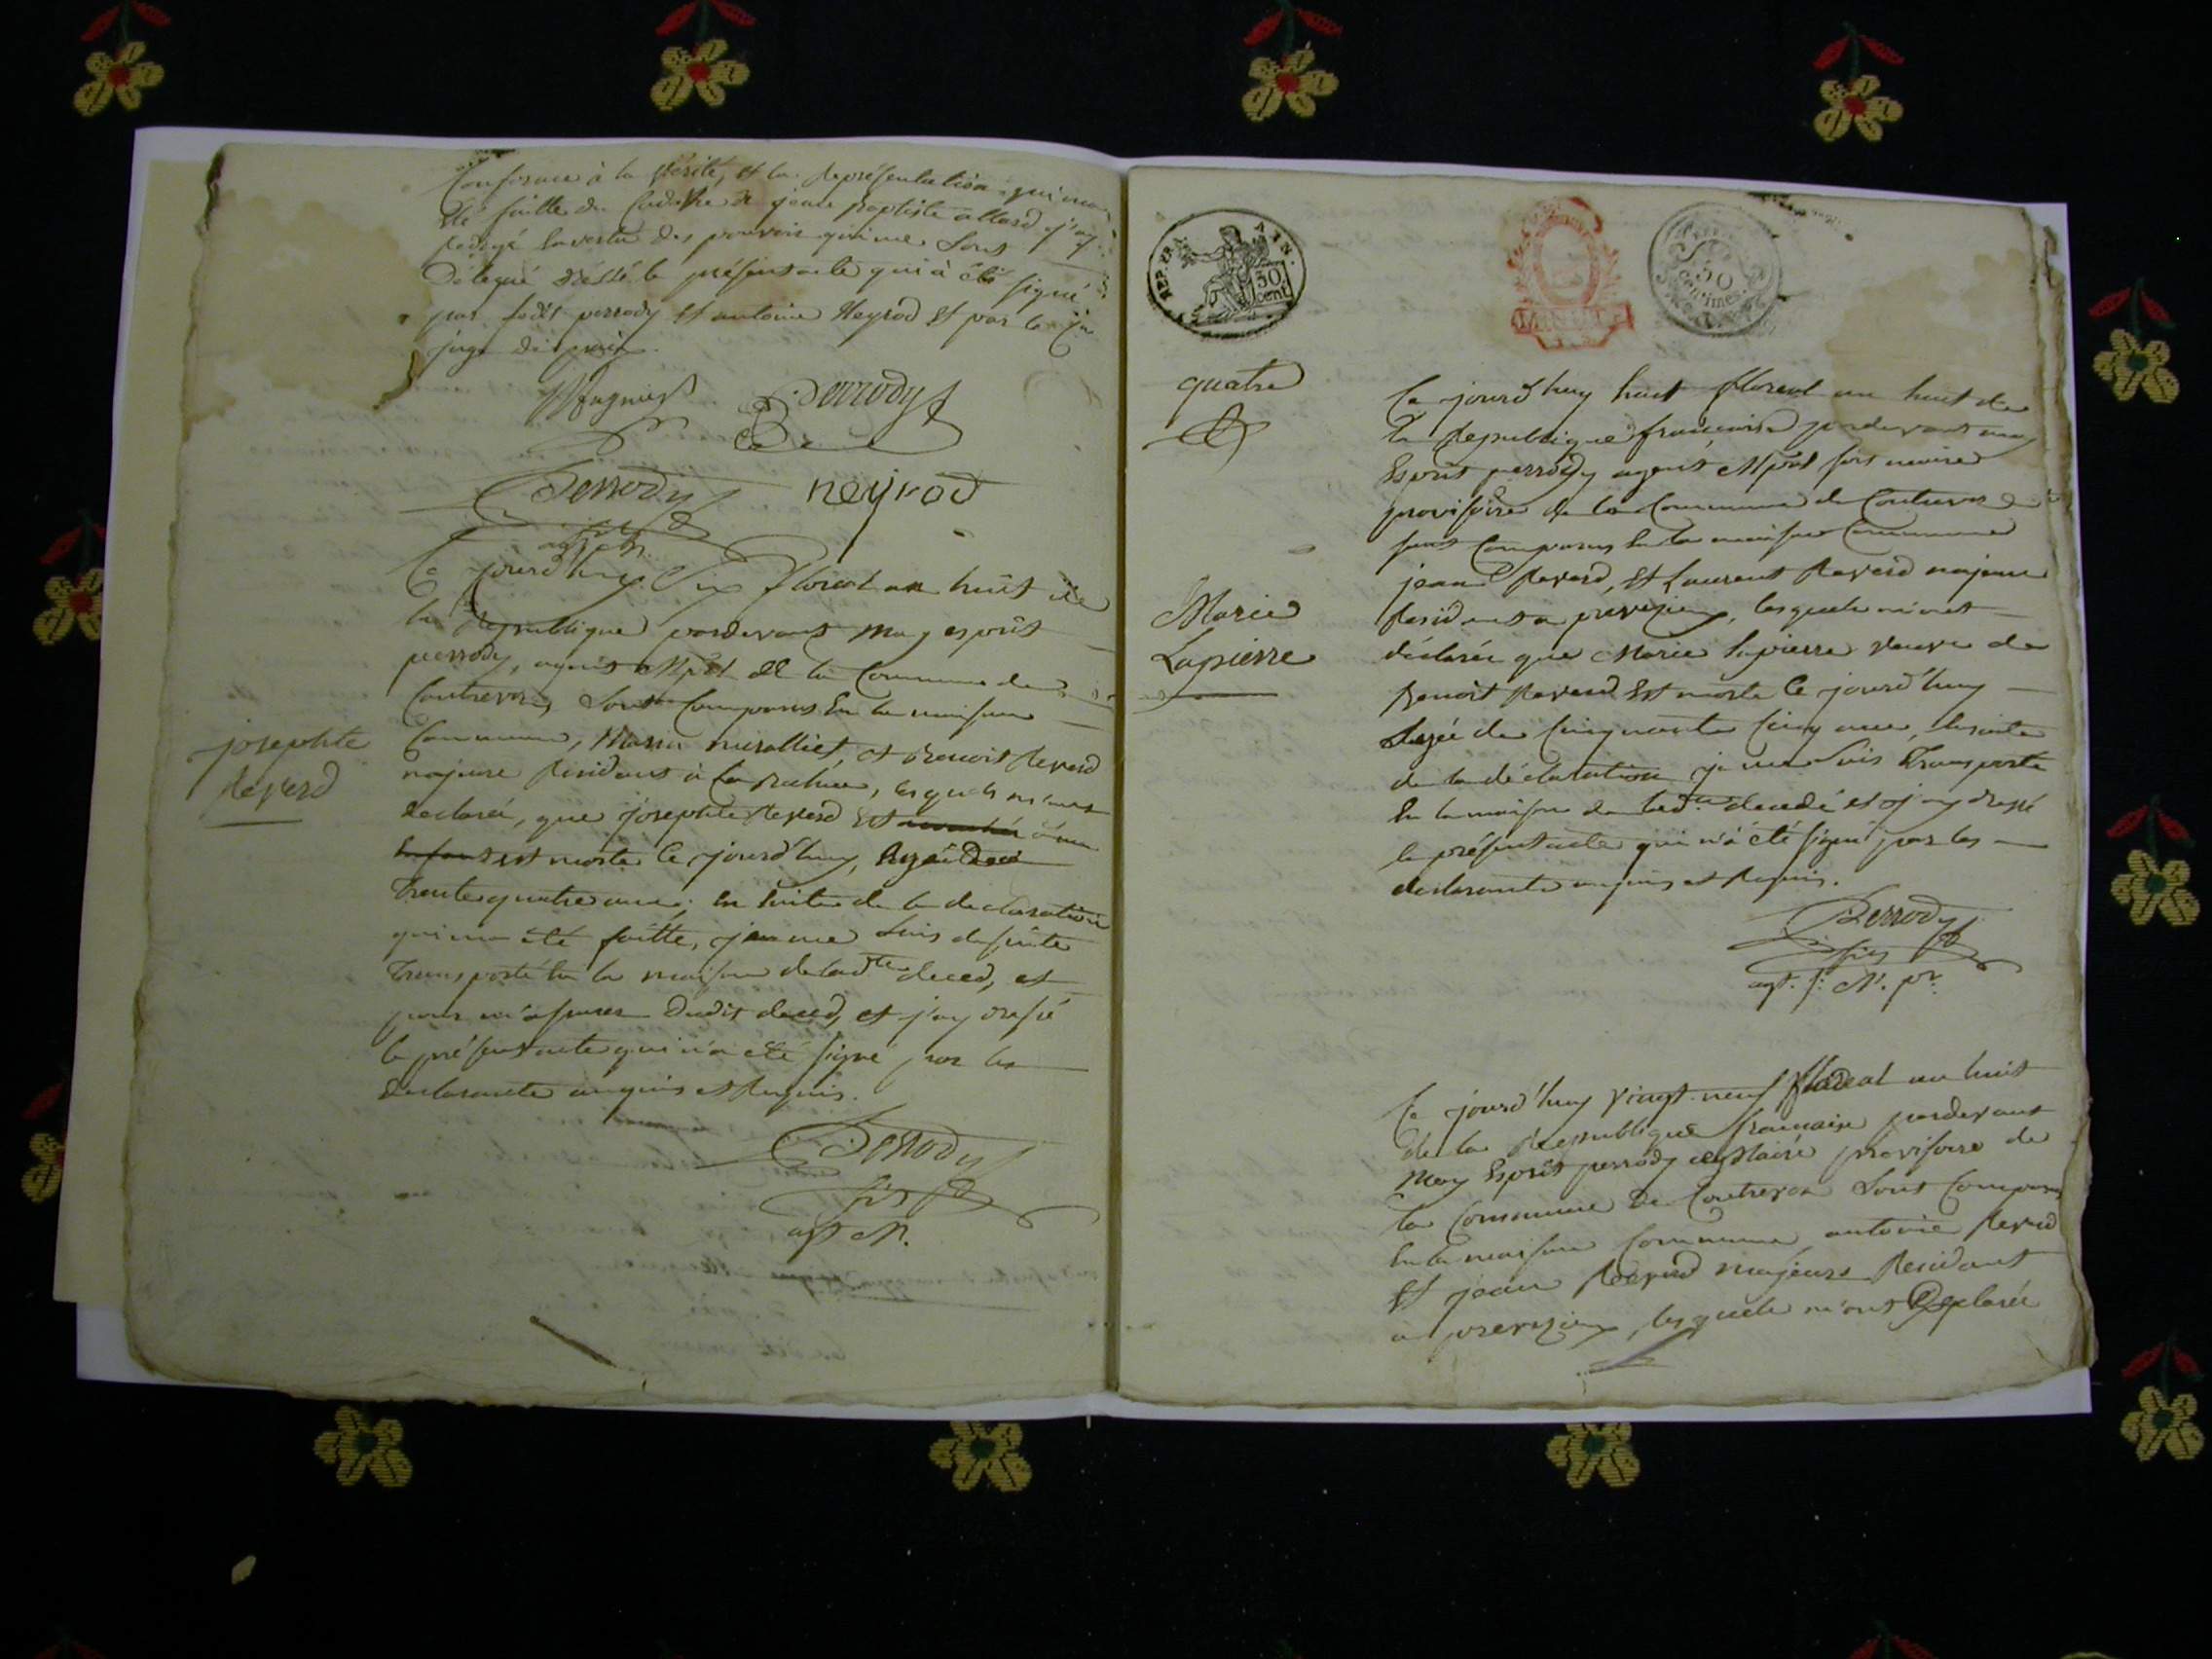 Conforme à la vérité, et la représentation qui m'a
été faitte du cadavre de jean baptiste allard j'ay
rédigé En vertu des pouvoirs qui me sont
délégué dessé le présent acte qui à été signé
par ledit perrody et antoine Neyrod et par le
juge de paix.
Perrody
Perrody neyrod
Ce jourd'huy Six floreal an huit de
la Republique pardevant moy esprit
perrody, agent Mpal de la Commune de
Contrevoz, sont Comparus En la maison
josephte
Reverd
Commune, et Benoit Reverd
majeurs Residants à, lesquels m'ont
declaré, que josephte Reverd Est
est morte Ce jourd'huy, Agée de
Trente quatre ans; En suitte de la declaration
qui m'a été faitte, je me suis de suitte
Transporté En la maison de ladte deced, et
pour m'assurer dudit deced, et j'ay dressé
le présent acte qui n'a été signé par les
declarants enquis et Requis.
Perrody
fils
agt M.
REP. FRA AIN.
50
cent
50
centimes
quatre
Ce jourd'huy huit floreal an huit de
la Republique françaisse pardevant moy
Esprit perrody agent Mpal fait maire
provisoire de la Commune de Contrevoz
sont Comparus En la maison Commune
jean Reverd, Et Laurent Reverd majeurs
Residants a preveyzieu, lesquels m'ont
Marie
Lapierre
déclarée que Marie Lapierre veuve de
Benoit Reverd Est morte Ce jourd'huy
Agée de Cinquante Cinq ans, Ensuite
de la déclaration je me suis Transporté
En la maison de ladte decedé et j'ay dressé
le présent acte qui n'a été signé par les
declarants enquis et Requis.
Perrody
fils
agt. f. M. pr.
Ce jourd'huy vingt neuf floreal an huit
de la Republique francaise pardevant
Moy Esprit perrody Maire provisoire de
la Commune de Contrevoz sont Comparus
En la maison Commune antoine Reverd
Et jean Reverd majeurs Residants
a preveyzieu, lesquels m'ont Declarée